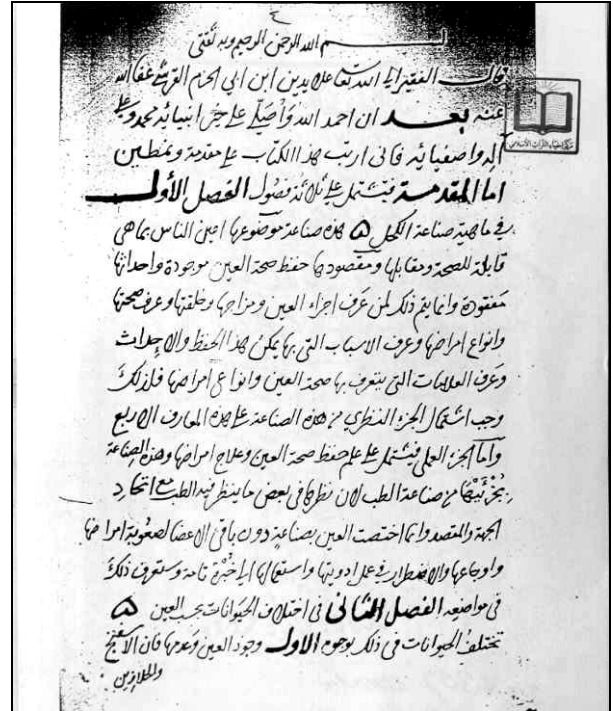 بسم الله الرحمن الرحيم وبه ثقتي
قال الفقير الى الله تعالى علا يدين ابن ابي الحزم القرشي عفا الله
عنه بعد ان احمد الله واصلي على خير انبيائه محمد وعلى
آله واصفيائه فاني ارتب هذا الكتاب على مقدمة ونمطين
اما المقدمة فيشتمل على ثلاثة فصول الفصل الأول
في ماهية صناعة الكحل هذه صناعة موضوعها اعين الناس بما هى
قابلة للصحة ومقابلها ومقصودها حفظ صحة العين موجودة واحداثها
مفقودة وانما يتم ذلك لمن عرف اجزاء العين ومزاجها وخلقتها وعرف صحتها
وانواع امراضها وعرف الاسباب التى بها يمكن هذا الحفظ والاحداث
وعرف العلامات التى يتعرف بها صحة العين وانواع امراضها فلذلك
وجب اشتمال الجزء النظري من هذه الصناعة على هذه المعارف الاربع
وأما الجزء العملى فيشتمل على علم حفظ صحة العين وعلاج امراضها وهذه الصناعة
من صناعة الطب لان نظرها في بعض ما ينظر فيه الطب مع اتحاد
الجهة والمقصد وانما اختصت العين بصناعة دون باقي الاعضا لصعوبة امراضها
واوجاعها والاضطرار في عمل ادويتها واستعمالها الى خبرة تامة وستعرف ذلك
في مواضعه الفصل الثانى فى اختلاف الحيوانات بحسب العين
تختلف الحيوانات فى ذلك بوجوه الاول وجود العين وعدمها فان الاسفنج
والحلازين